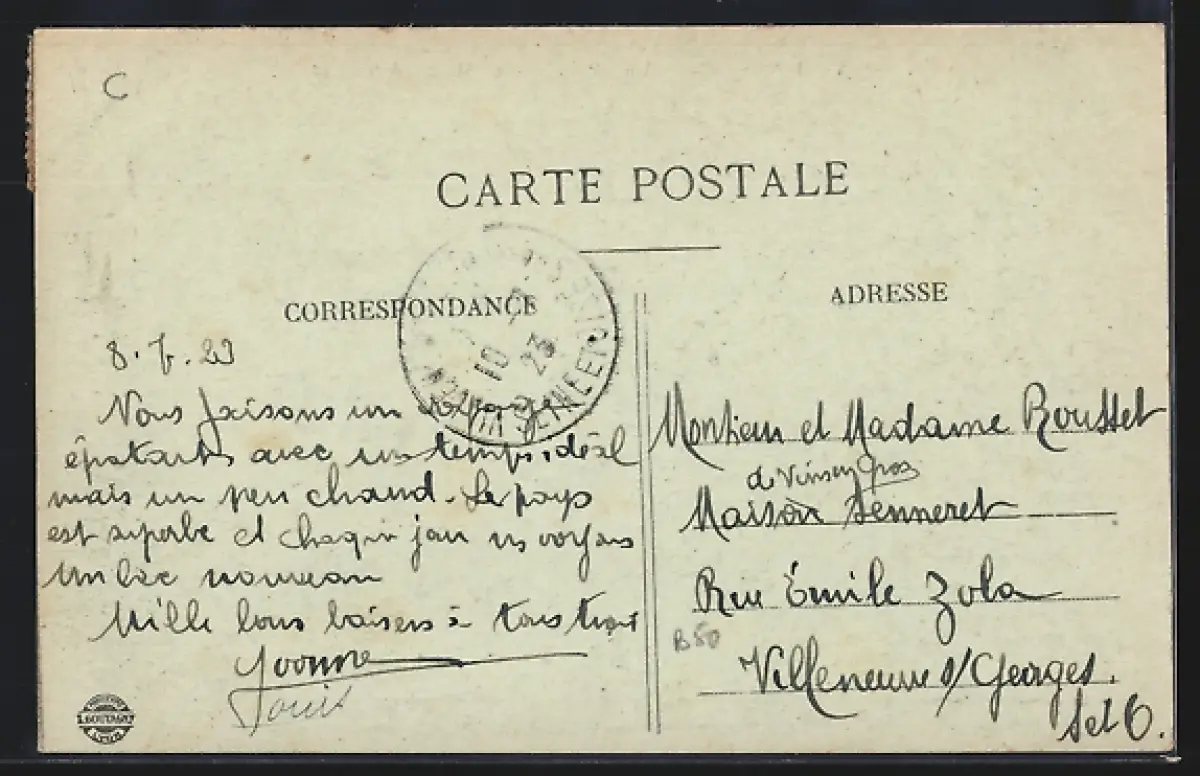 C
CARTE POSTALE
CORRESPONDANCE
ADRESSE
8.7.23
Nous faisons un voyage
épatant avec un temps idéal
mais un peu chaud. Le pays
est superbe et chaque jour ns voyons
un lac nouveau
Mille bons baisers à tous trois
Yvonne
Louis
10
23
SEINE ET OISE
Monsieur et Madame Rousset
Maison Senneret
Rue Émile Zola
B50
Villeneuve s/ Georges.
S et O.
LYON